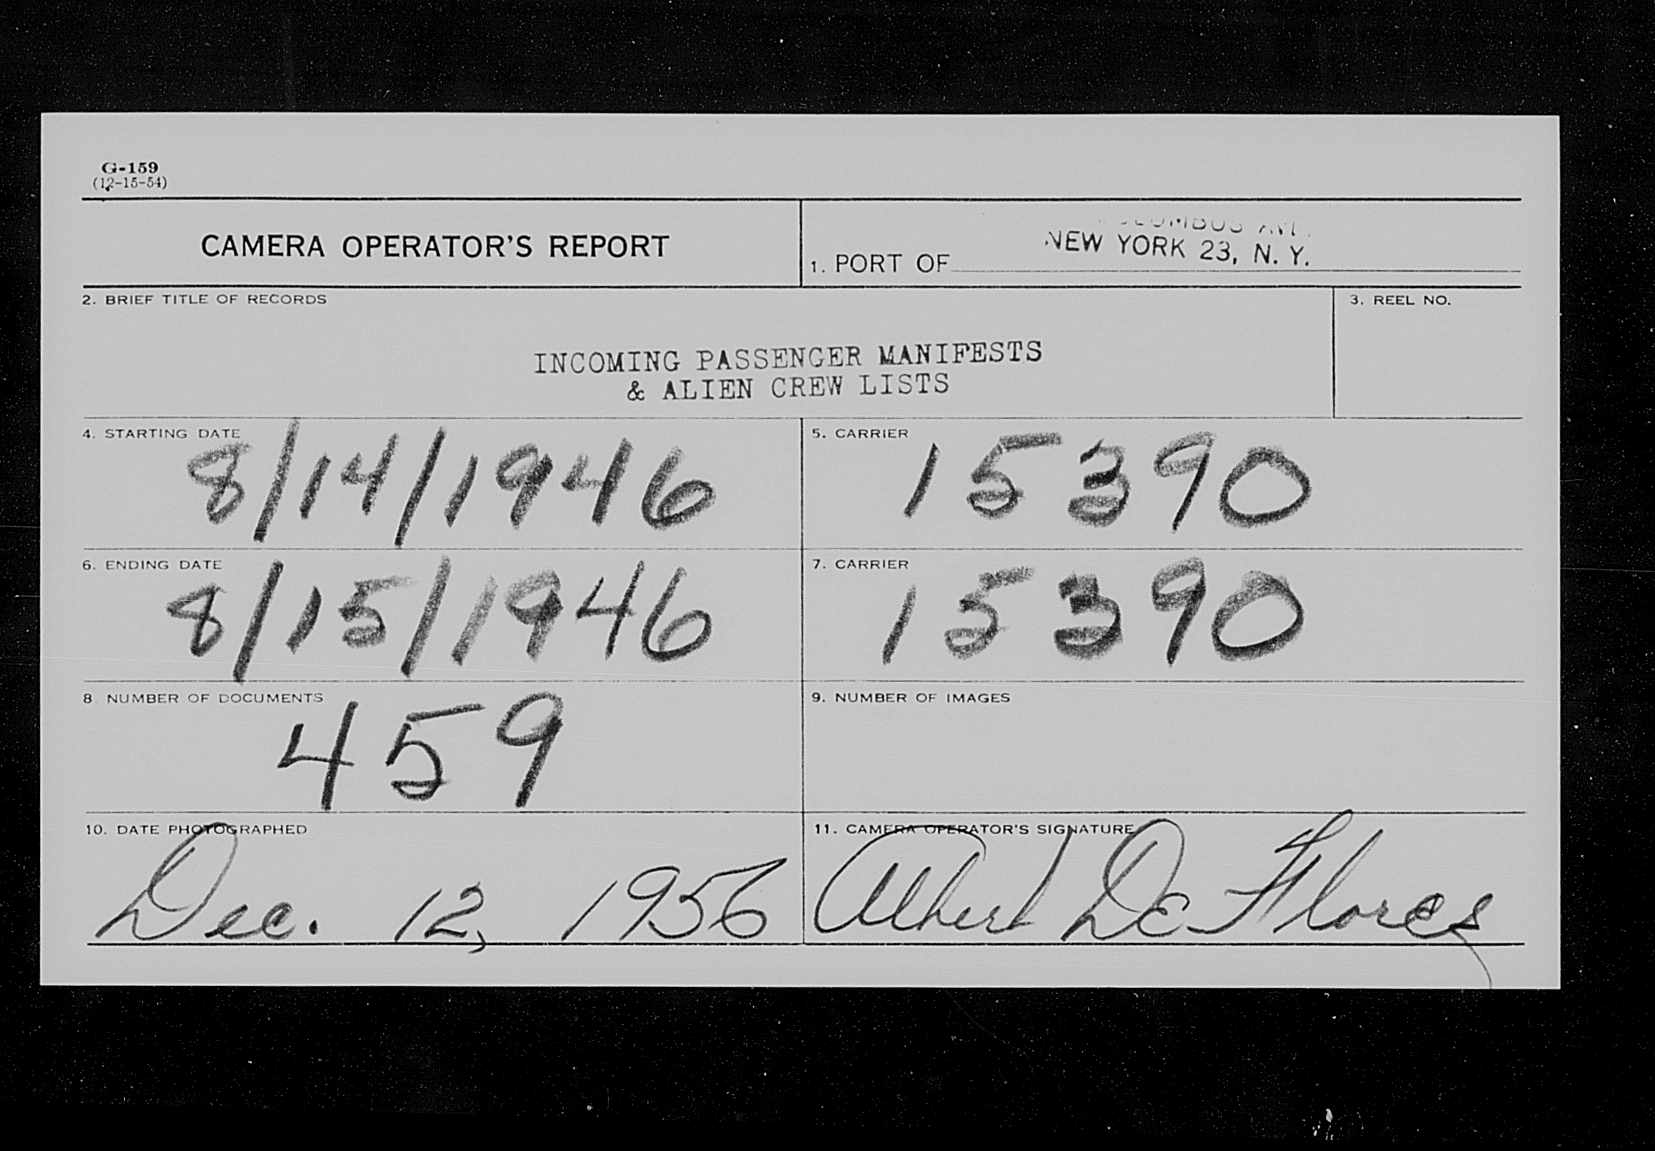 G-159
(12-15-54)
CAMERA OPERATOR'S REPORT
1. PORT OF NEW YORK 23, N. Y.
2. BRIEF TITLE OF RECORDS
3. REEL NO.
INCOMING PASSENGER MANIFESTS
& ALIEN CREW LISTS
4. STARTING DATE
8/14/1946
5. CARRIER
15390
6. ENDING DATE
8/15/1946
7. CARRIER
15390
8 NUMBER OF DOCUMENTS
459
9. NUMBER OF IMAGES
10. DATE PHOTOGRAPHED
Dec. 12, 1956
11. CAMERA OPERATOR'S SIGNATURE
Albert De Flores